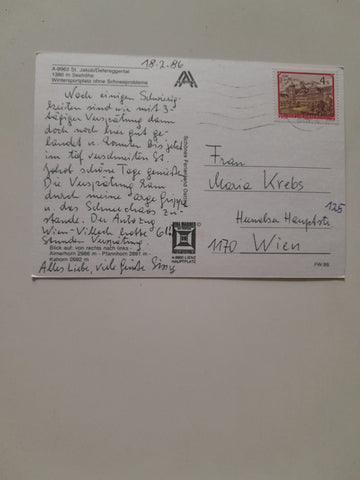 18.2.86
A-9963 St. Jakob/Defereggental
1390 m Seehöhe
Wintersportplatz ohne Schneeprobleme
Nach einigen Schwierig-
keiten sind wir mit 3-
tägiger Verspätung dann
doch noch hier gut ge-
landet u. konnten bis jetzt
im tief verschneiten St.
Jakob schöne Tage genießen.
Die Verspätung kam
durch meine Grippe
u. das Schneechaos zu-
stande. Der Autozug
Wien-Villach hatte 6 1/2
Stunden Verspätung.
Blick auf: von rechts nach links -
Almerhorn 2986 m - Pfannhorn 2891 m -
Alles Liebe, viele Grüße Sissy
Schönes Ferienland Osttirol
A-9900 LIENZ
HAUPTPLATZ
4 S
Frau
Maria Krebs
Hernalser Hauptstr.
125
1170 Wien